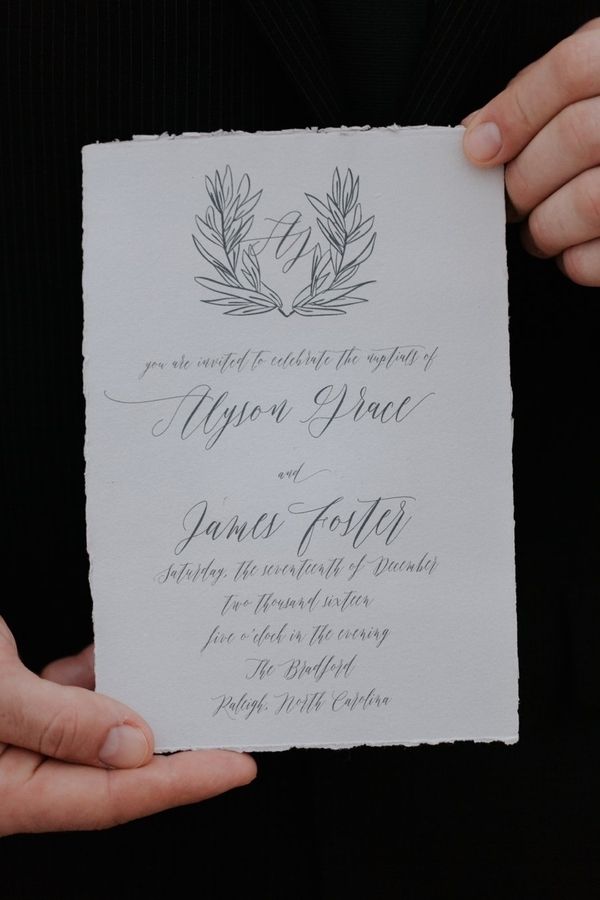 AJ
you are invited to celebrate the nuptials of
Alyson Grace
and
James Foster
Saturday, the seventeenth of December
two thousand sixteen
five o'clock in the evening
The Bradford
Raleigh, North Carolina